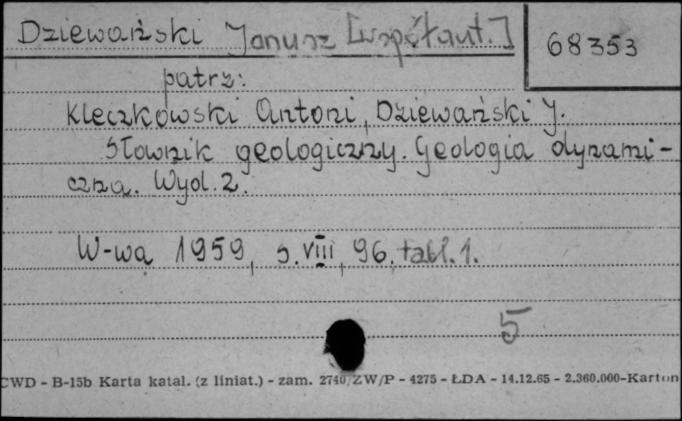 Dziewański Janusz [współaut.]
68353
patrz:
Kleczkowski Antoni, Dziewański J.
Słownik geologiczny. Geologia dynami-
czna. Wyd. 2.
W-wa 1959, s. VIII, 96, tabl. 1.
5
CWD - B-15b Karta katal. (z liniat.) - zam. 2740/ZW/P - 4275 - ŁDA - 14.12.65 - 2.360.000-Karton